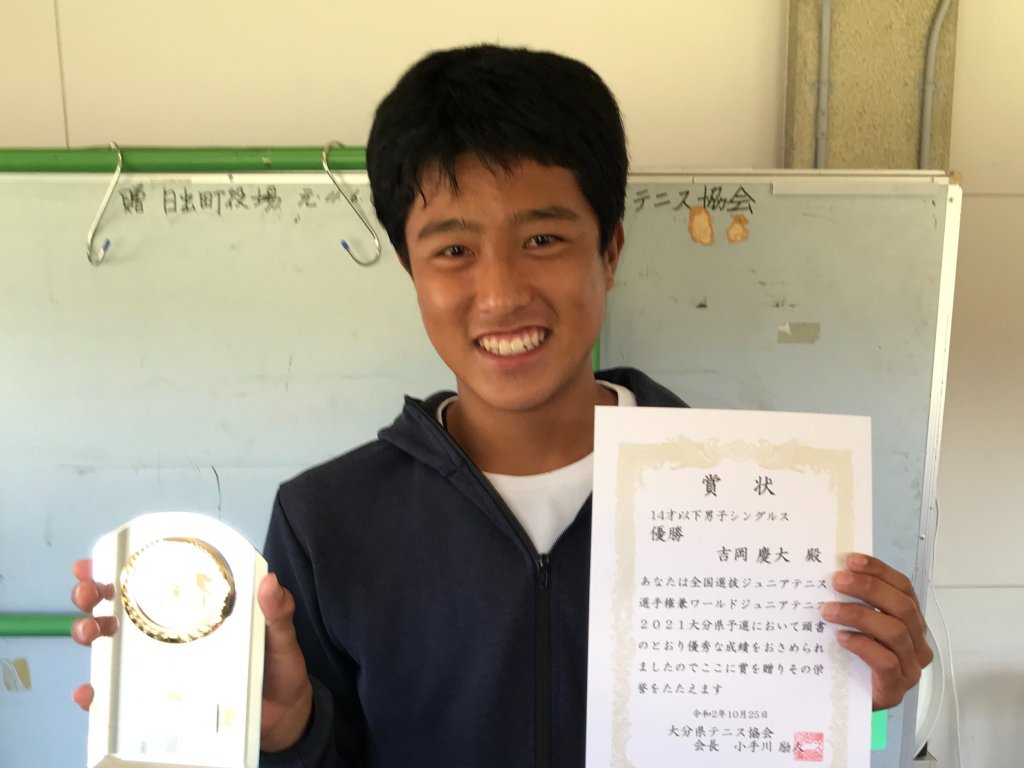 贈 日出町役場
テニス協会
賞 状
14才以下男子シングルス
優勝
吉岡 慶大 殿
あなたは全国選抜ジュニアテニス
選手権兼ワールドジュニアテニス
2021大分県予選において頭書
のとおり優秀な成績をおさめられ
ましたのでここに賞を贈りその栄
誉をたたえます
令和2年10月25日
大分県テニス協会
会長 小手川 励